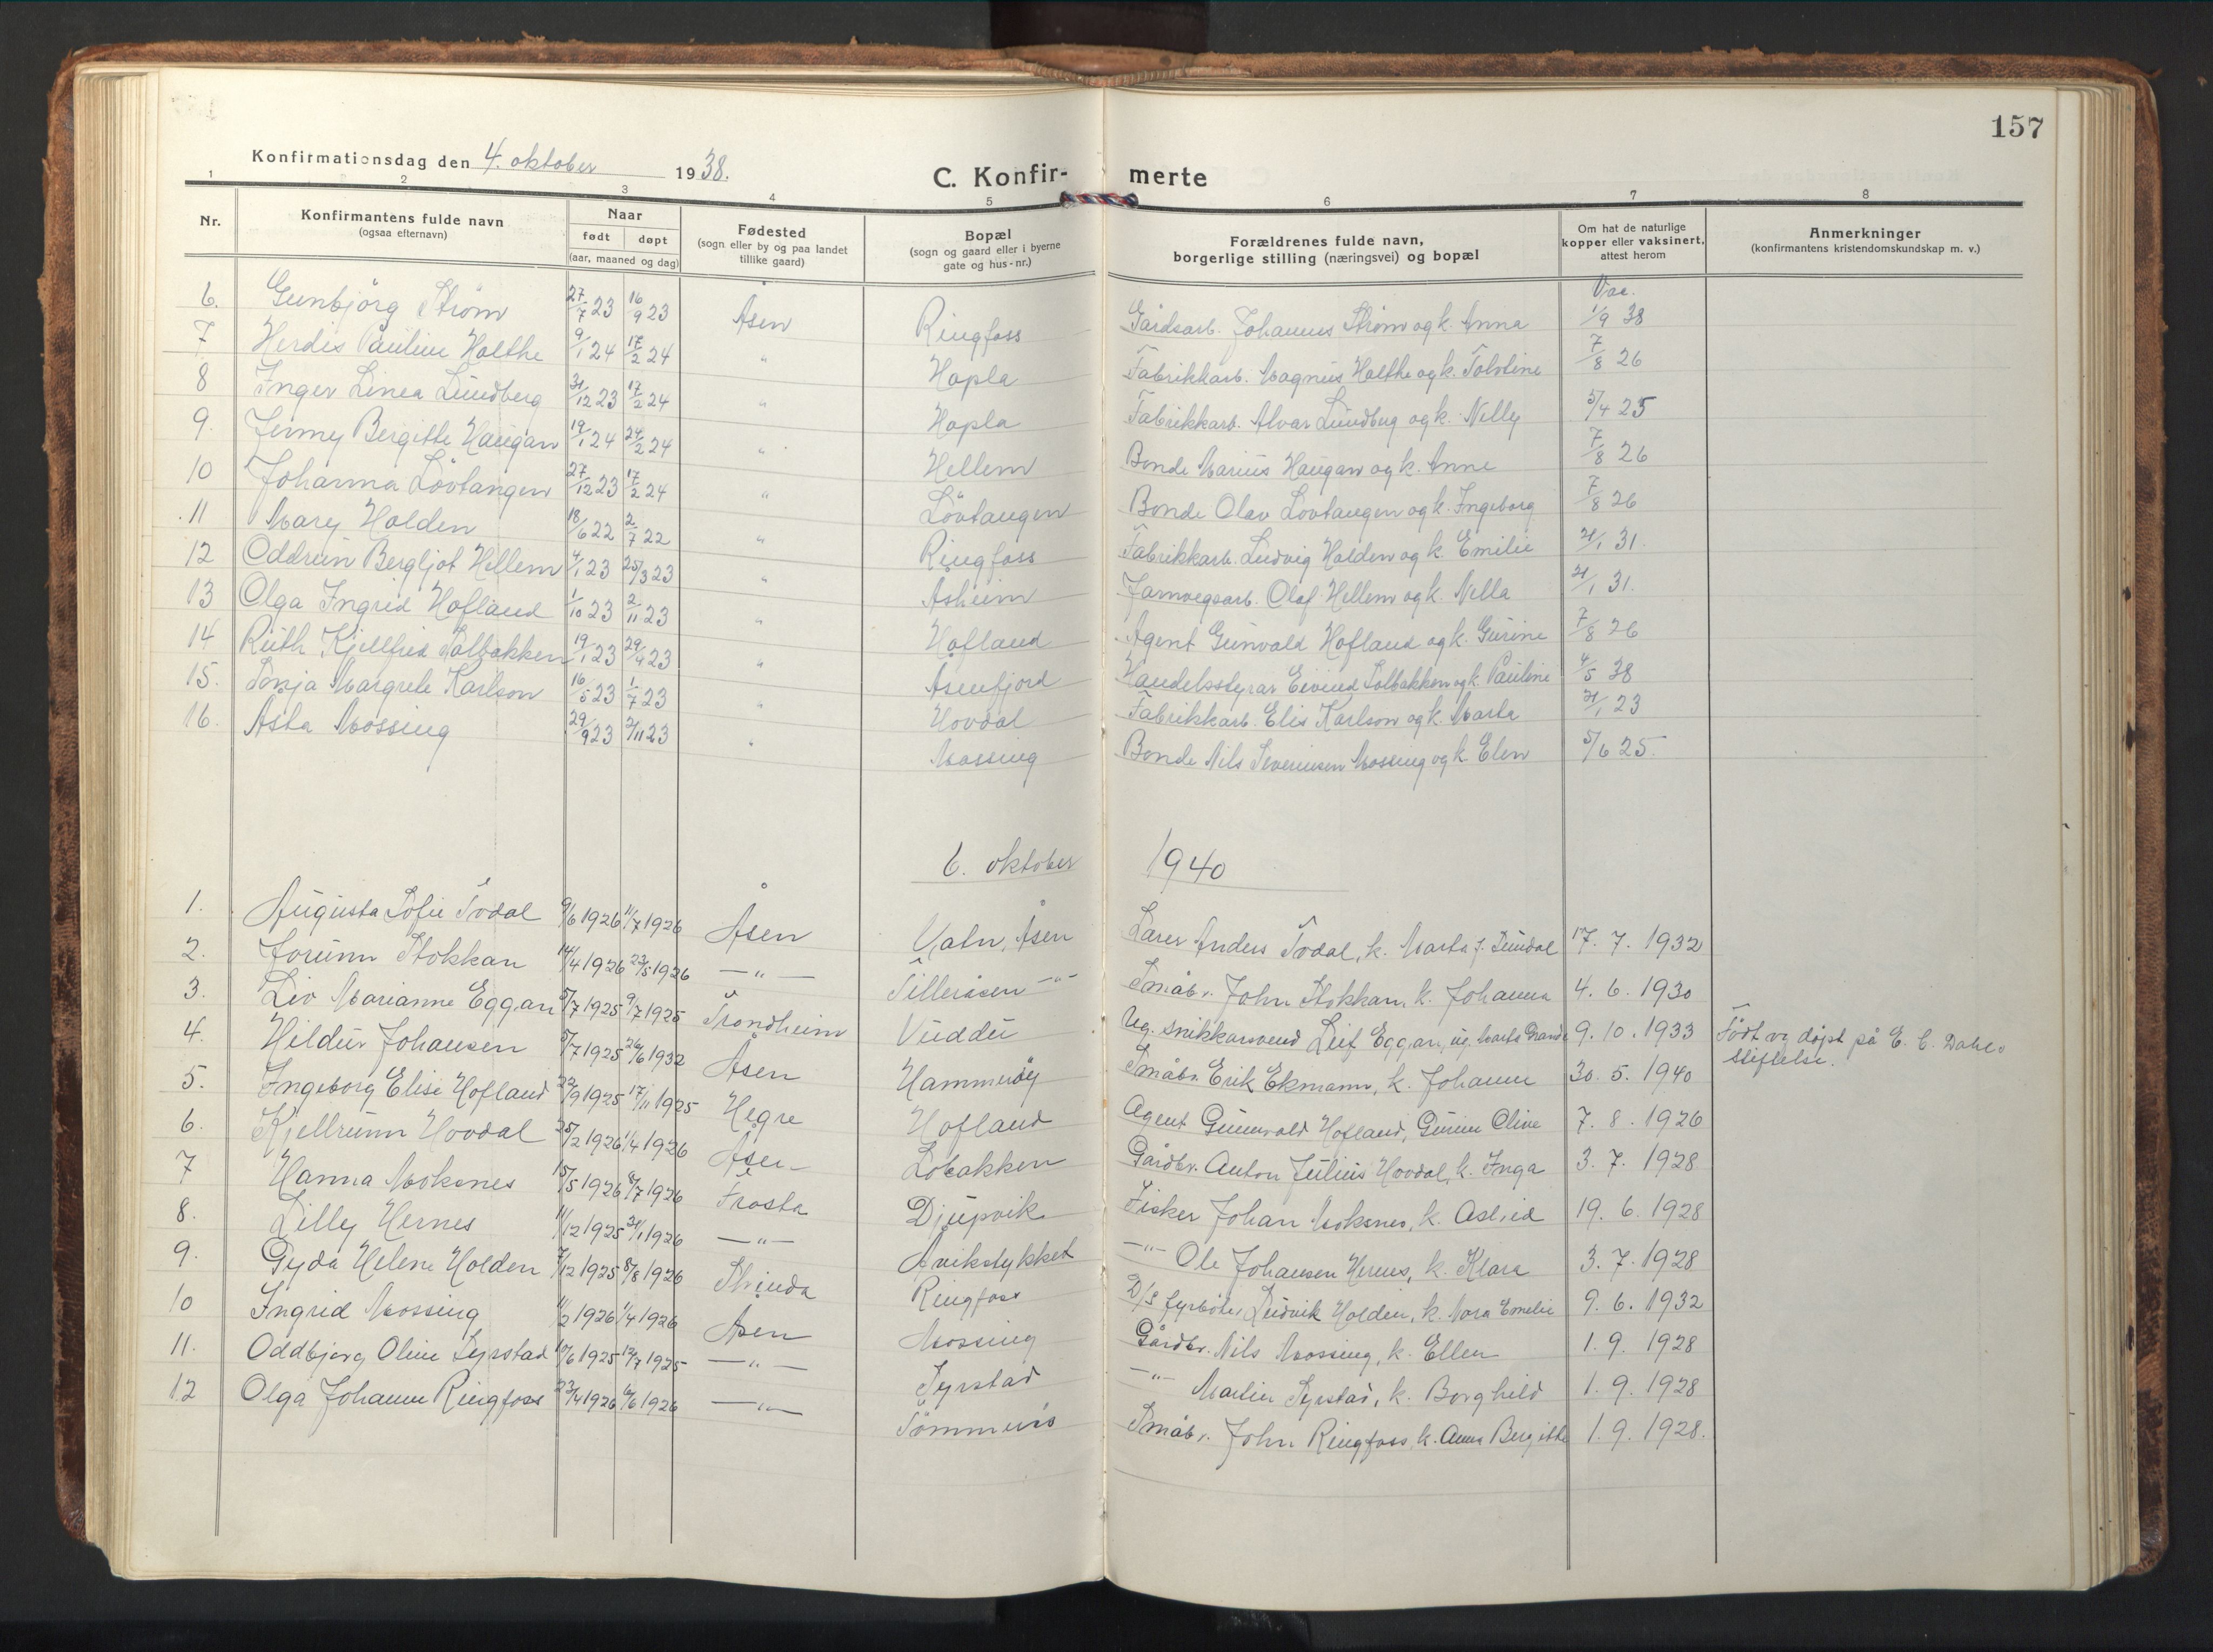 157
Konfirmationsdag den 4. oktober 1938.
C. Konfir- merte
1 2 3 4 5 6 7 8
Nr. Konfirmantens fulde navn (ogsaa efternavn) Naar født døpt (aar, maaned og dag) Fødested (sogn eller by og paa landet tillike gaard) Bopæl (sogn og gaard eller i byerne gate og hus-nr.) Forældrenes fulde navn, borgerlige stilling (næringsvei) og bopæl Om hat de naturlige kopper eller vaksinert, attest herom Anmerkninger (konfirmantens kristendomskundskap m. v.)
Vac.
6. Gunbjörg Strøm 27/7 23 16/9 23 Åsen Ringfoss Gårdsarb. Johannes Strøm og k. Anna 1/9 38
7 Herdis Pauline Holthe 9/1 24 17/2 24 " Hopla Fabrikkarb. Magnus Holthe og k. 7/8 26
8 Inger Linea Lundberg 31/12 23 17/2 24 " Hopla Fabrikkarb. Alvar Lundberg og k. Nelly 5/4 25
9. Jenny Bergitte Haugan 19/1 24 24/2 24 " Hellem Bonde Marius Haugan og k. Anne 7/8 26
10 Johanna Lövtangen 27/12 23 17/2 24 " Lövtangen Bonde Olav Lövtangen og k. Ingeborg 7/8 26
11 Mary Holden 18/6 22 2/7 22 " Ringfoss Fabrikkarb. Ludvig Holden og k. Emilie 21/1 31.
12 Oddrun Bergljot Hellem 4/1 23 25/3 23 " Åsheim Jarnvegsarb. Olaf Hellem og k. Nella 21/1 31.
13 Olga Ingrid Hofland 1/10 23 2/11 23 " Hofland Agent Gunvald Hofland og k. Gurine 7/8 26
14 Ruth Kjellfrid Solbakken 19/1 23 29/4 23 " Åsenfjord Handelsstyrar Eivind Solbakken og k. Pauline 4/5 38
15. Sonja Margrete Karlson 16/5 23 1/7 23 " Hovdal Fabrikkarb. Elis Karlson og k. Marta 21/1 23
16. Asta Mossing 29/9 23 2/11 23 " Mossing Bonde Nils Severinsen Mossing og k. Elen 5/6 25.
6. oktober 1940
1. Augusta Sofie Tødal 9/6 1926 11/7 1926 Åsen Vatn, Åsen Lærer Anders Tødal, k. Marta f. Sundal 17. 7. 1932
2. Jorunn Stokkan 14/4 1926 23/5 1926 —"— Tilleråsen —"— Småbr. John Stokkan, k. Johanna 4. 6. 1930
3. Liv Marianne Eggan 5/7 1925 9/7 1925 Trondheim Vuddu Ug. snikkarsvend Leif Eggan, ug. Marta Grande 9. 10. 1933 Født og døpt på E. C. Dahls stiftelse.
4. Hildur Johansen 5/7 1925 26/6 1932 Åsen Hammerøy Småbr. Erik Ekmann, k. Johanne 30. 5. 1940
5. Ingeborg Elise Hofland 22/9 1925 17/11 1925 Hegre Hofland Agent Gunnvald Hofland, Gurine Oline 7. 8. 1926
6. Kjellrunn Hovdal 25/2 1926 1/4 1926 Åsen Lobakken Gårdbr. Anton Julius Hovdal, k. Inga 3. 7. 1928
7 Hanna Moksnes 15/5 1926 8/7 1926 Frosta Djupvik Fisker Johan Moksnes, k. Aslaug 19. 6. 1928
8. Lilly Hernes 11/12 1925 31/1 1926 —"— Avikstykket —"— Ole Johansen Hernes, k. Klara 3. 7. 1928
9. Gyda Helene Holden 7/12 1925 8/8 1926 Strinda Ringfoss D/S fyrbøter Ludvik Holden, k. Nora Emelie 9. 6. 1932
10 Ingrid Mossing 11/2 1926 1/4 1926 Åsen Mossing Gårdbr. Nils Mossing, k. Ellen 1. 9. 1928
11. Oddbjørg Oline Syrstad 10/6 1925 12/7 1925 —"— Syrstad —"— Martin Syrstad, k. Borghild 1. 9. 1928
12 Olga Johanne Ringfoss 23/4 1926 6/6 1926 —"— Småbr. John Ringfoss, k. Anna Bergitte 1. 9. 1928.